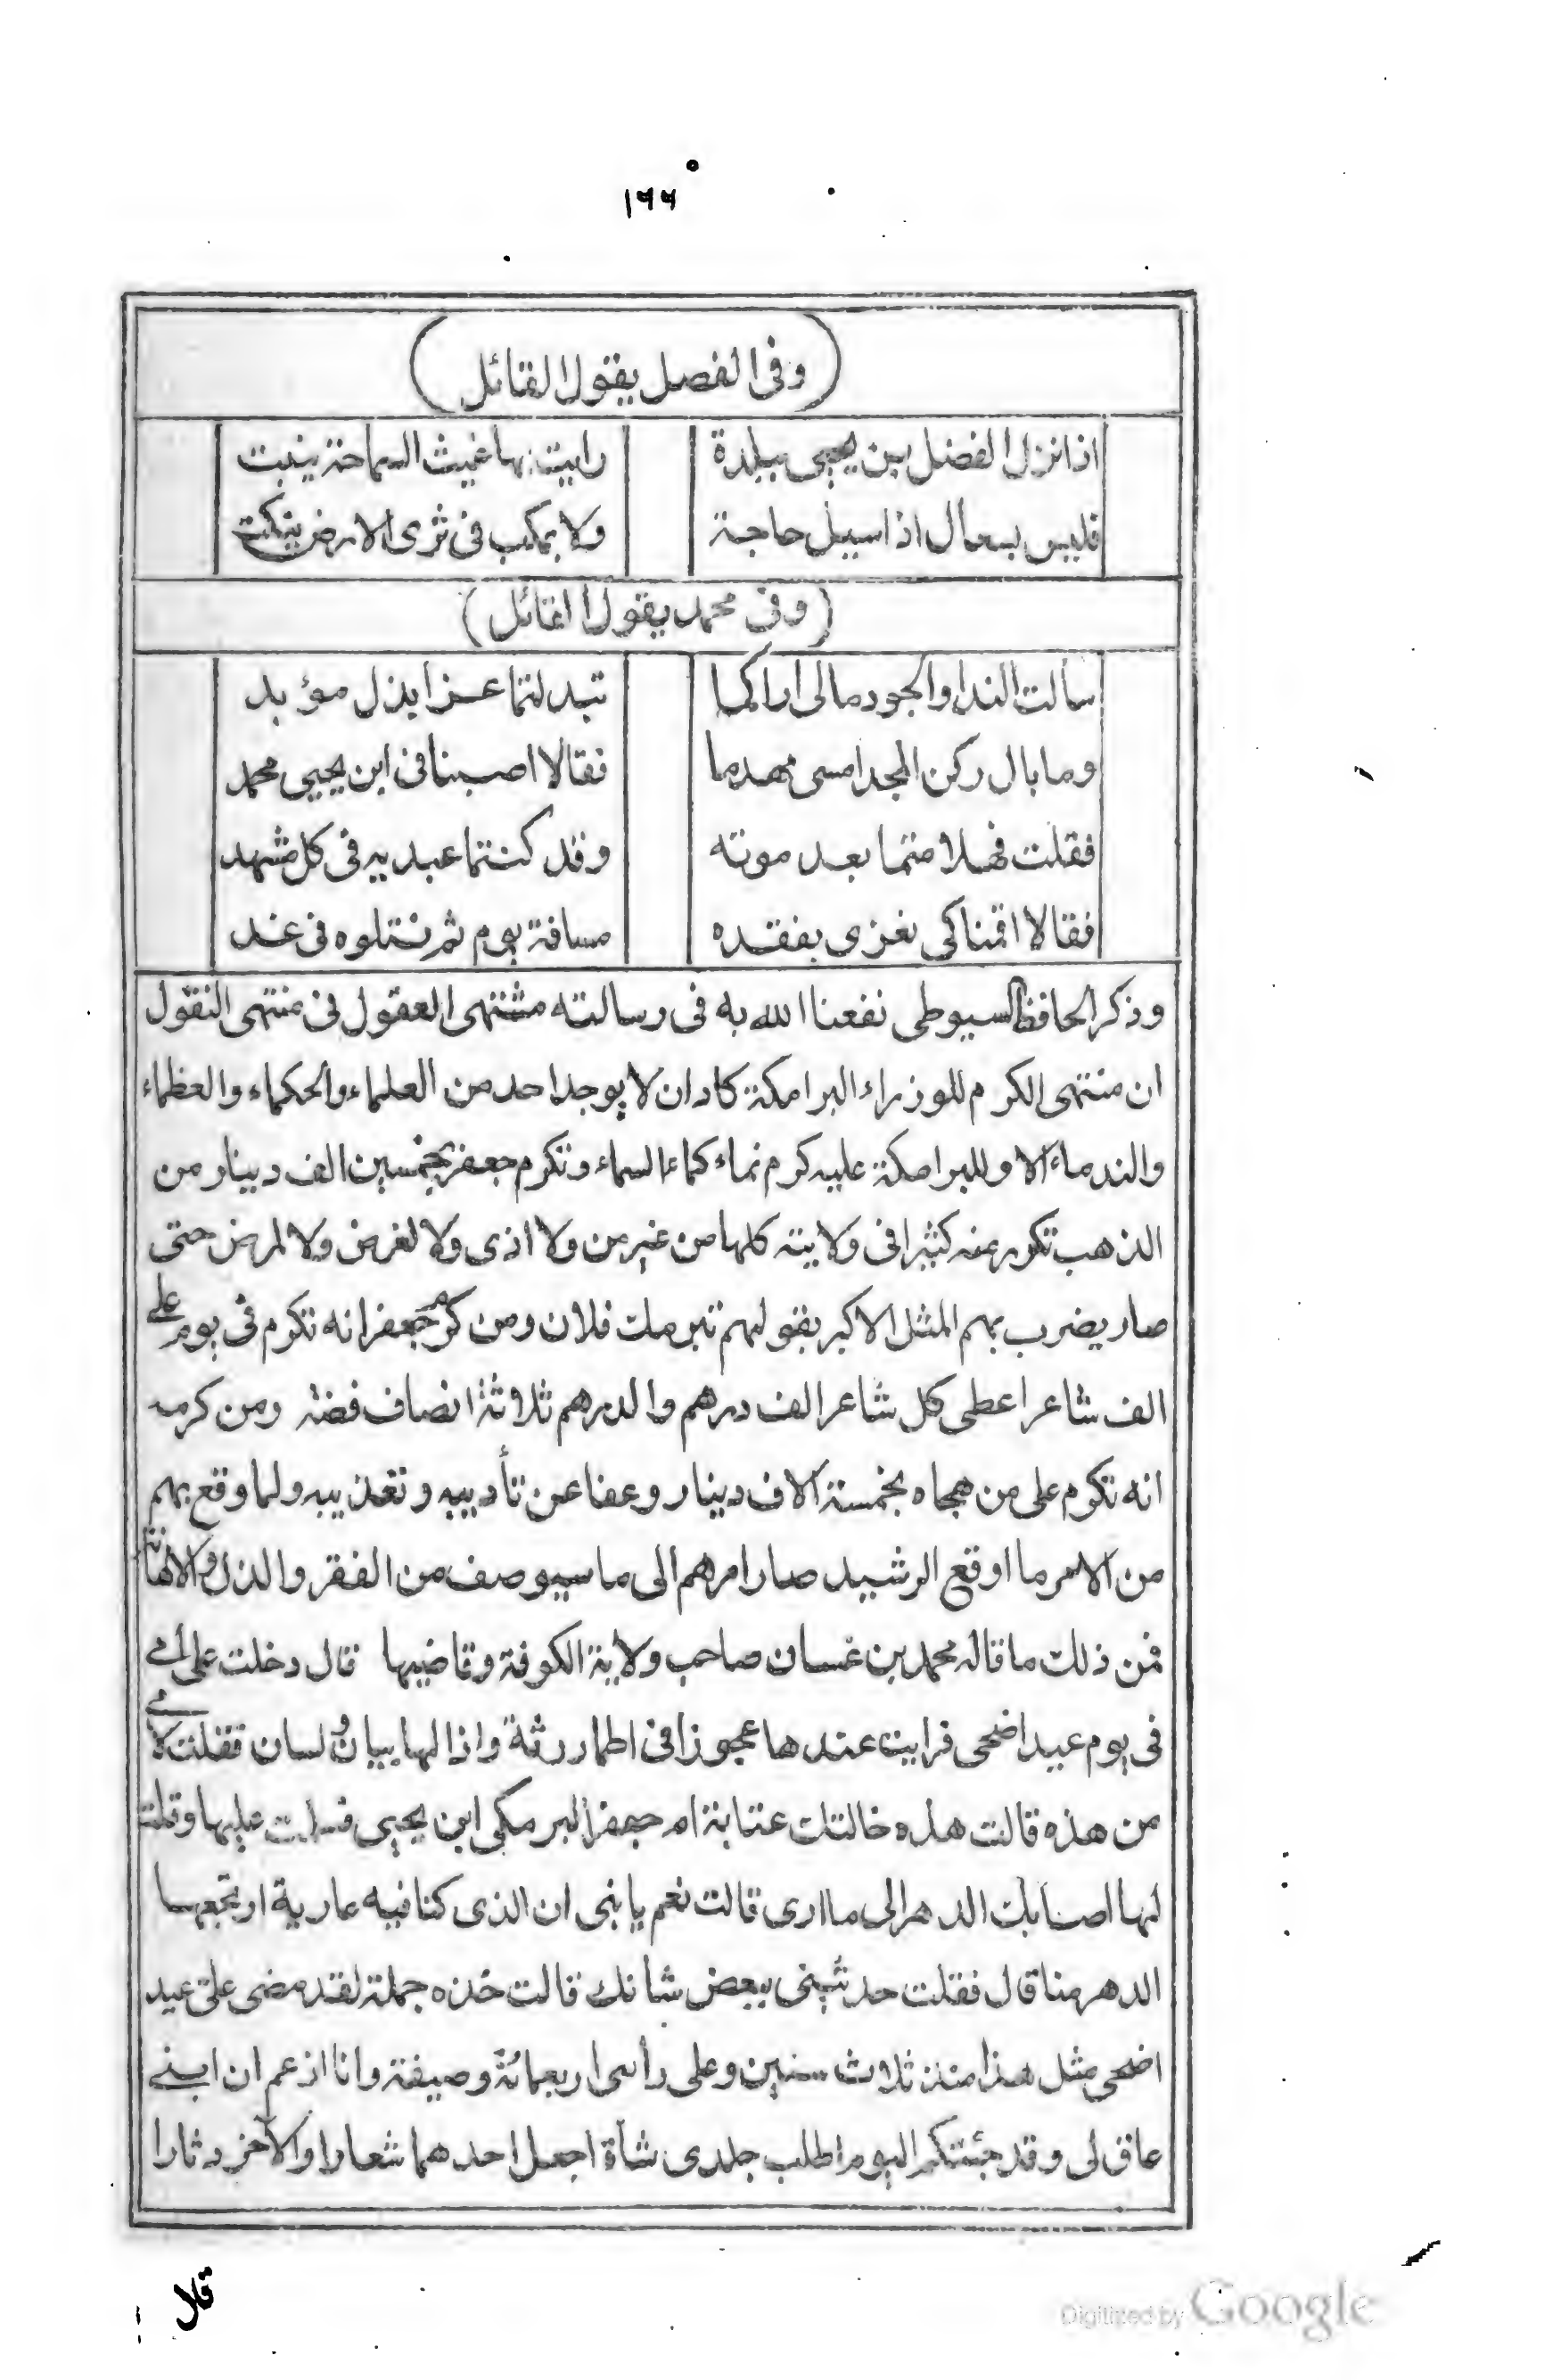 ١٦٦
(وفى الفصل يقول القائل)
اذا نزل الفضل بين يحيى ببلدة رايت بها غيث السماحة ينبت
فليس بسعال اذا سيل حاجة ولا بمكب فى ثرى الارض ينكت
(وفى محمد يقول القائل)
سألت الندا والجود مالى اراكما تبدلتما عزا بذل مؤبد
وما بال ركن المجد امسى مهدما فقالا اصبنا فى ابن يحيى محمد
فقلت فهلا متما بعد موته وقد كنتما عبديه فى كل مشهد
فقالا اقمنا كى نعزى بفقده مسافة يوم ثم نتلوه فى غد
وذكر الحافظ السيوطى نفعنا الله به فى رسالته مشتهى العقول فى منتهى النقول
ان منتهى الكرم للوزراء البرامكة كاد ان لا يوجد احد من العلماء والحكماء والعظماء
والندماء الا وللبرامكة عليه كرم نماء كماء السماء وتكرم جعفر بخمسين الف دينار من
الذهب تكور منه كثيرا فى ولايته كلها من غير من ولا اذى ولا لغرض ولا لمرض حتى
صار يضرب بهم المثل الاكبر بقولهم تبرمك فلان ومن كرم جعفر انه تكرم فى يوم على
الف شاعر اعطى كل شاعر الف درهم والدرهم ثلاثة انصاف فضة ومن كرمه
انه تكرم على من هجاه بخمسة الاف دينار وعفا عن تأديبه وتعذيبه ولما وقع بهم
من الامر ما اوقع الرشيد صار امرهم الى ما سيوصف من الفقر والذل والاهانة
فمن ذلك ما قاله محمد بن غسان صاحب ولاية الكوفة وقاضيها قال دخلت على أمى
فى يوم عيد اضحى فرايت عندها عجوزا فى اطمار رثة واذا لها بيان ولسان فقلت لامى
من هذه قالت هذه خالتك عتابة ام جعفر البرمكى ابن يحيى فسلمت عليها وقلت
لها اصابك الدهر الى ما ارى قالت نعم يا بنى ان الذى كنا فيه عارية ارتجعها
الدهر منا قال فقلت حدثينى ببعض شانك قالت خذه جملة لقد مضى على عيد
اضحى مثل هذا منذ ثلاث سنين وعلى رأسى اربعمائة وصيفة وانا ازعم ان ابنى
عاق لى وقد جئتكم اليوم اطلب جلدى شأة اجعل احدهما شعارا والآخر دثارا
قال
Digitized by Google